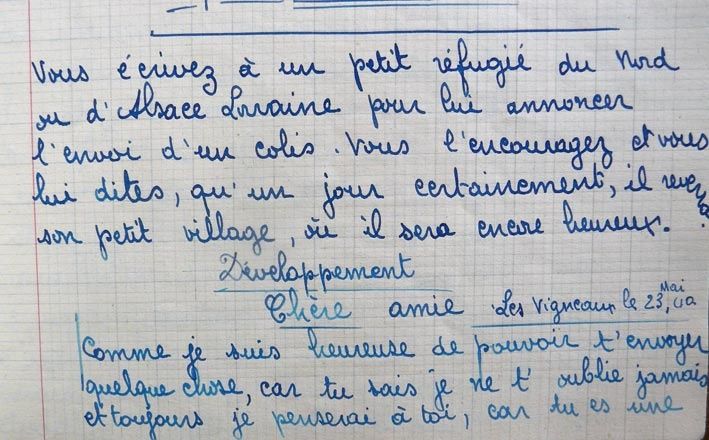 Vous écrivez à un petit réfugié du Nord
ou d'Alsace Lorraine pour lui annoncer
l'envoi d'un colis. Vous l'encouragez et vous
lui dites, qu'un jour certainement, il reverra
son petit village, où il sera encre heureux.
Développement
Chère amie Les Vigneaux le 23 Mai,
Comme je suis heureuse de pouvoir t'envoyer
quelque chose, car tu sais je ne t'oublie jamais
et toujours je penserai à toi, car tu es une